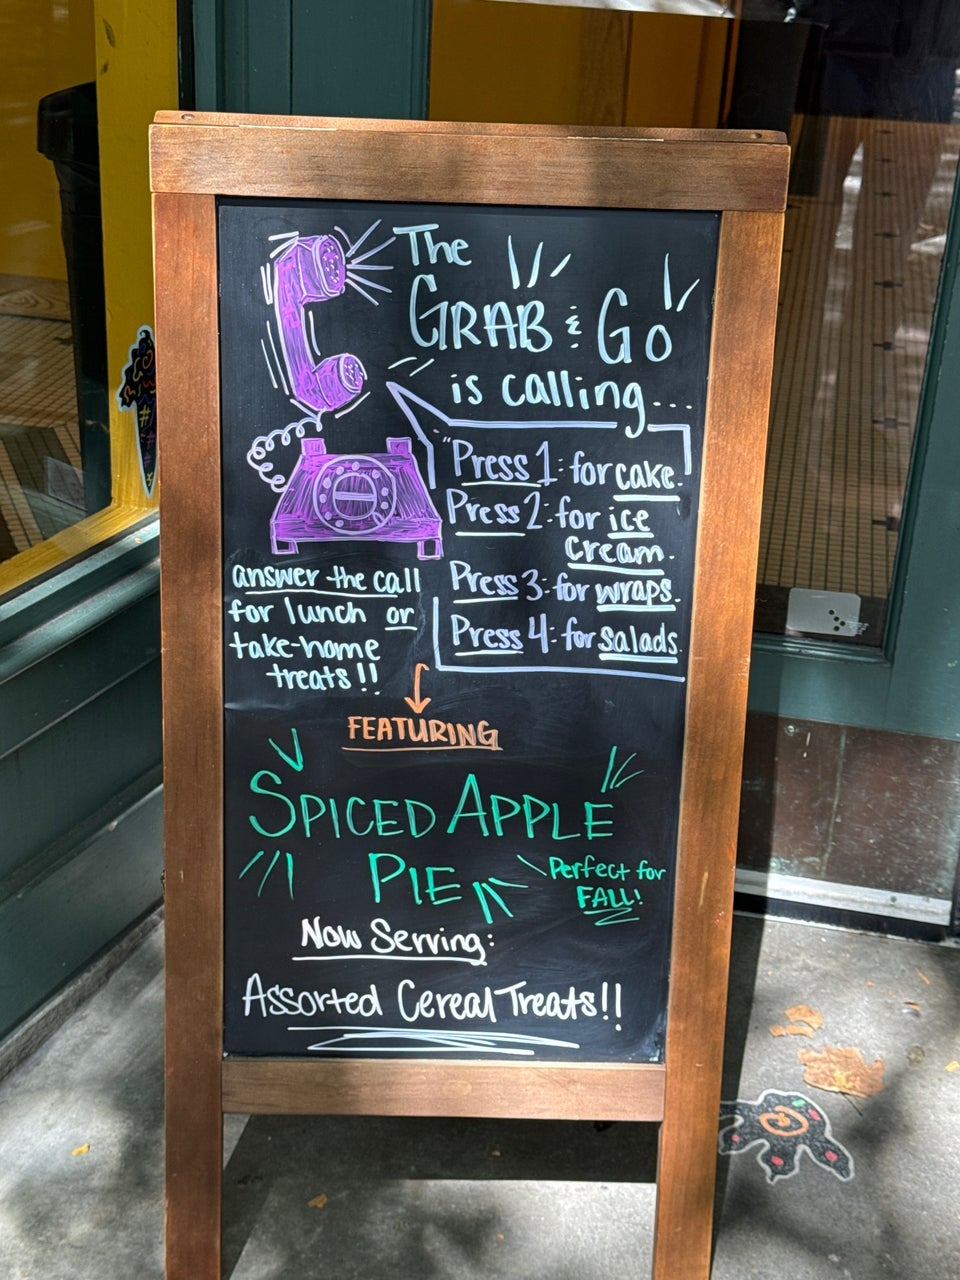 The
GRAB & GO
is calling...
"Press 1: for cake.
Press 2: for ice
cream.
Press 3: for wraps.
Press 4: for salads.
answer the call
for lunch or
take-home
treats!!
FEATURING
SPICED APPLE
PIE
Perfect for
FALL!
Now Serving:
Assorted Cereal Treats!!